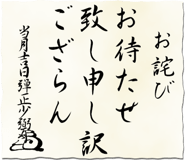 お詫び
お待たせ
致し申し訳
ござらん
当月吉日弾正少弼